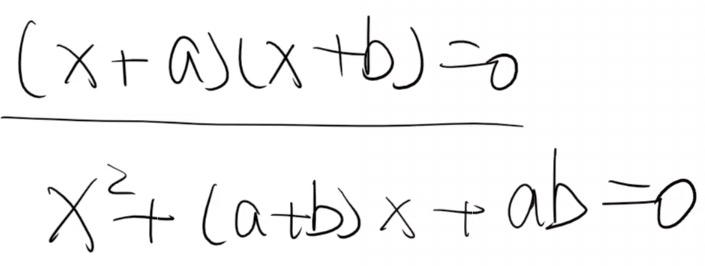 (x+a)(x+b)=0
x²+(a+b)x+ab=0